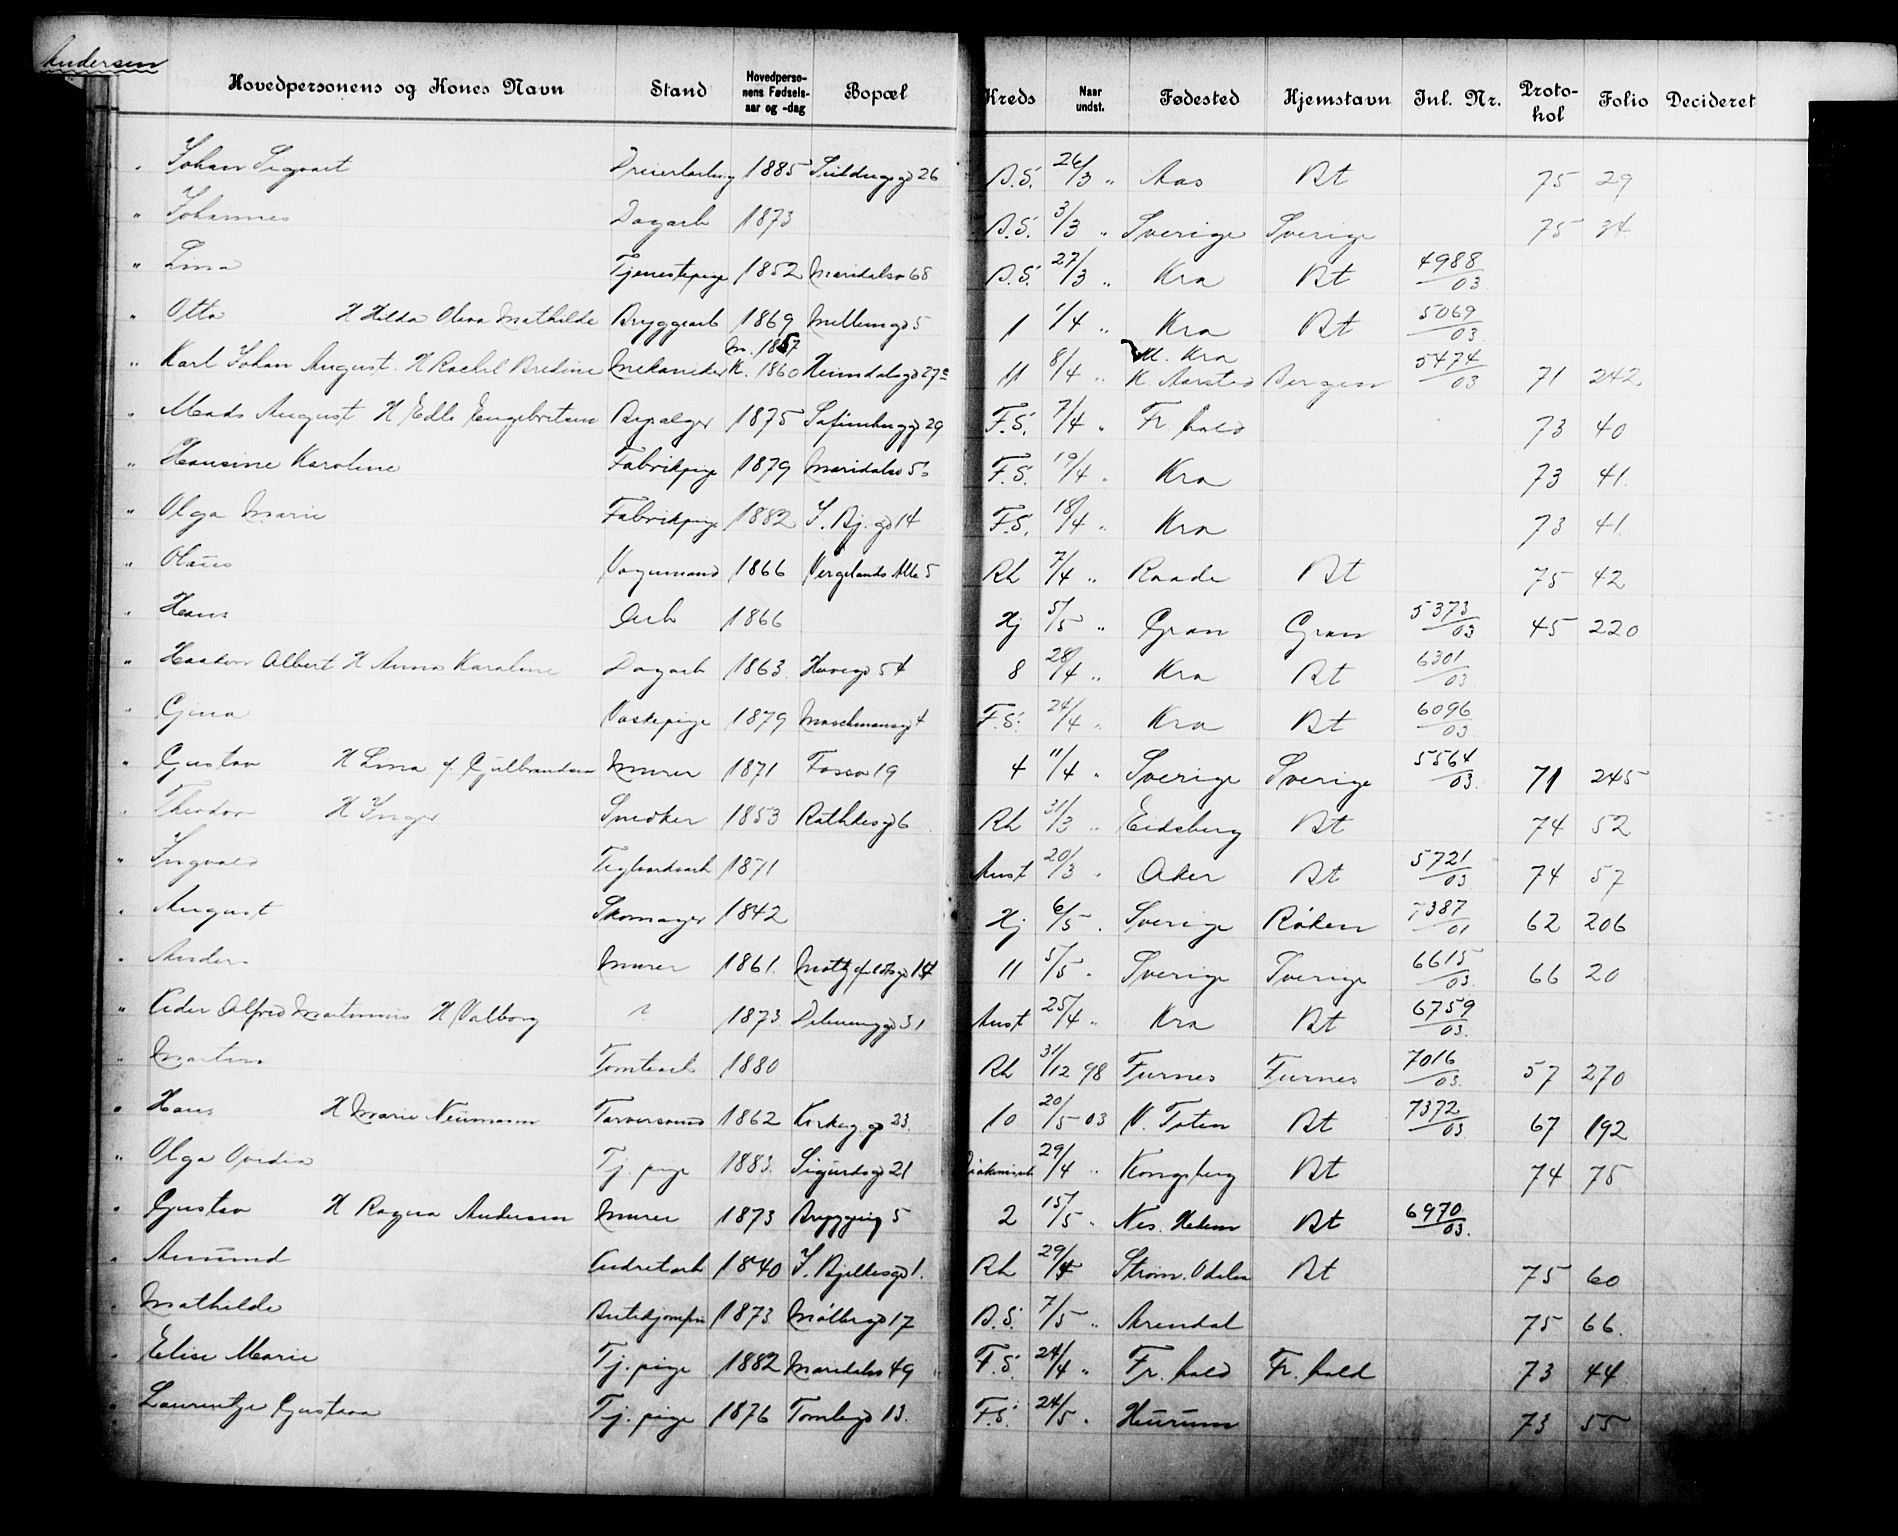 Andersen
Hovedpersonens og Kones Navn Stand Hovedpersonens Fødselsaar og -dag Bopæl Kreds Naar undst. Fødested Hjemstavn Inl. Nr. Protokol Folio Decideret
" Johan Sigvart 1885 26 B.S. 26/3 " Aas Bt 75 29
" Johannes Dagarb 1873 B.S. 3/3 " Sverige Sverige 75 34
" Lina Tjenestepige 1852 Maridalsv 68 B.S. 27/3 " Kra Bt 4988/03
" Otto H Hilda Olava Mathilde Bryggearb 1869 Møllergd 5 1 1/4 " Kra Bt 5069/03
" Karl Johan August. H Rachel Bredine Mekaniker M. 1857 K. 1860 Heimdalsgd 27 11 8/4 " M. Kra K. Aarstad Bergen 5474/03 71 242
" Mads August H Edle Engebretsen 1875 Sofienberggd 29 F.S. 7/4 " Fr.hald 73 40
" Hansine Karoline Fabrikpige 1879 Maridalsv F.S. 19/4 " Kra 73 41.
" Olga Marie Fabrikpige 1882 J. Bj. gd 14 F.S. 18/4 " Kra 73 41
" Olaus Vognmand 1866 Vergelands Alle 5 Rh 7/4 " Raade Bt 75 42
" Hans Arb 1866 Hj 5/5 " Gran Gran 5373/03 45 220
" Haakon Albert H Anna Karoline Dagarb 1863. 54 8 28/4 " Kra Bt 6301/03
" Gina Vaskepige 1879 F.S. 24/4 " Kra Bt 6096/03
" Gustav H Lina f. Gulbrandsen Murer 1871 Fossv 19 4 11/4 " Sverige Sverige 5564/03. 71 245
" Theodor H Inger Snedker 1853 Rathkesgd 6 Rh 31/3 " Eidsberg Bt 74 52
" Ingvald 1871 Aust 20/3 " Aker Bt 5721/03 74 57
" August Skomager 1842 Hj 6/5 . Sverige Røken 7387/01 62 206
" Anders Murer 1861. 14 11 5/5 " Sverige Sverige 6615/03. 66 20
" Peder Alfred Martinius H Valborg 1873 31 Aust 25/4 " Kra Bt 6759/03.
" Martin Tomtearb 1880 Rh 31/12 98 Furnes Furnes 7016/03. 57 270
" Hans H Marie Neumann 1862 23. 10 20/5 03 V. Toten Bt 7372/03 67 192
" Olga Ovedia Tj. pige 1883. Sigurdsgd 21 29/4 " Kongsberg Bt 74 75
" Gustav H Ragna Andersen Murer 1873 5 2 15/5 " Nes. Hedem Bt 6970/03.
" Amund 1840 J. Bjelkesgd 1. Rh 29/4 Strøm. Odalen Bt 75 60
" Mathilde 1873. Møllergd 17 B.S. 7/5 " Arendal 75 66.
" Elise Marie Tj. pige 1882 Maridalsv 49 F.S. 24/4 " Fr.hald Fr.hald 73 44
" Laurentze Gustava Tj. pige 1876 13. F.S. 24/5 " Hurum 73 55